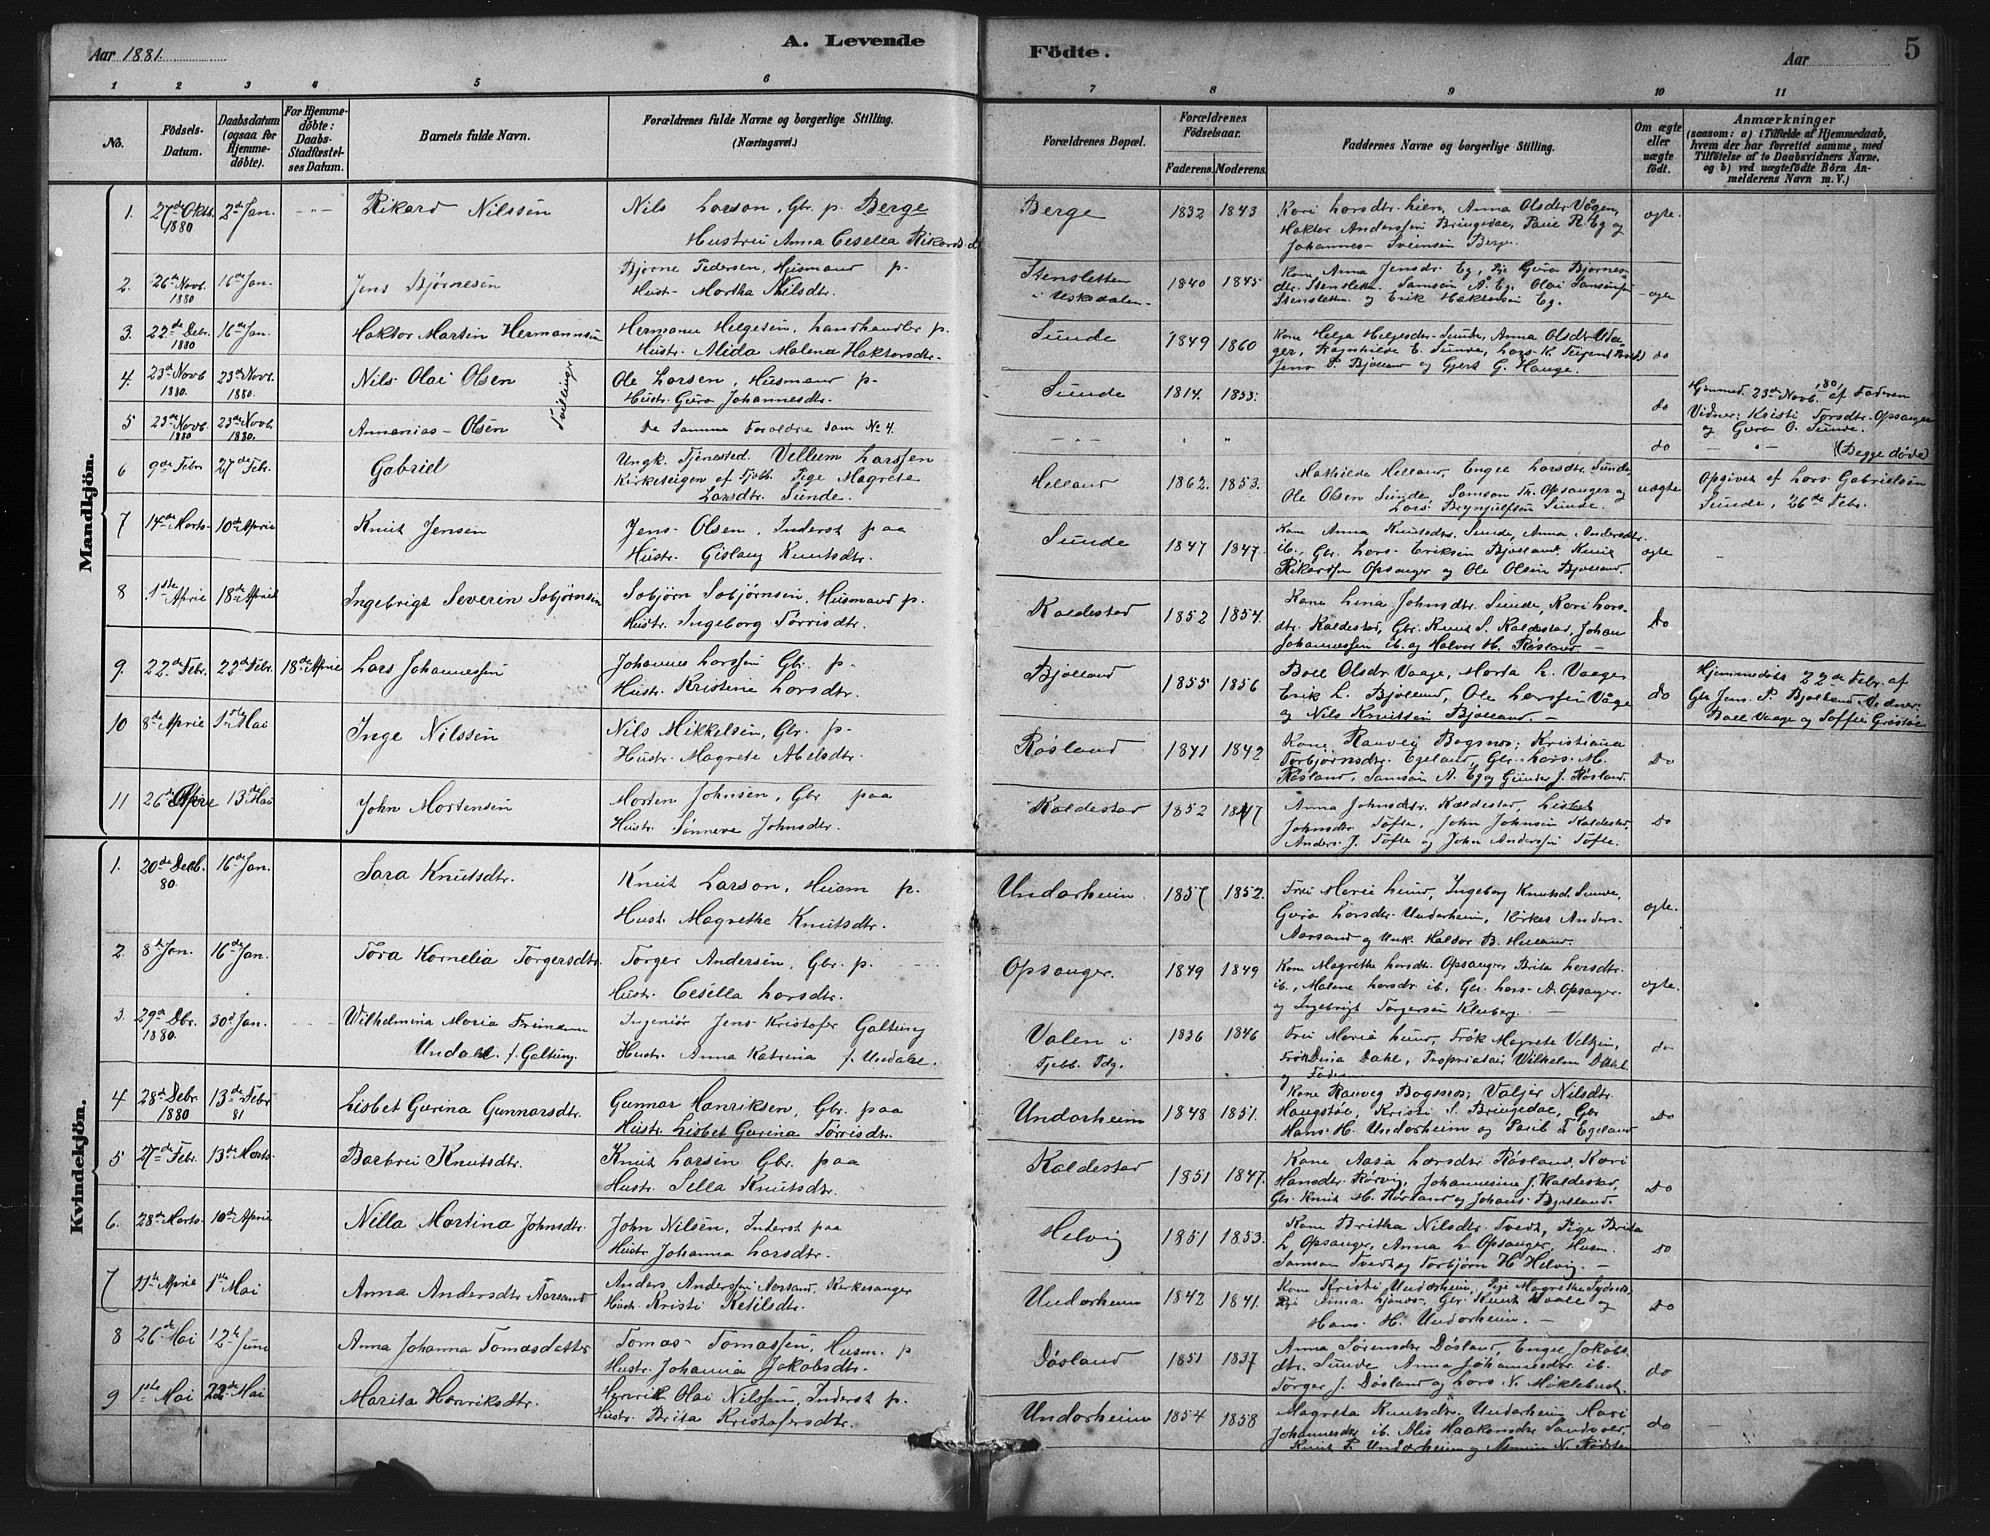 Aar 1881.
A. Levende
Födte.
Aar
5
1 2 3 4 5 6 7 8 9 10 11
No.
Födsels-
Datum.
Daabsdatum
(ogsaa for
Hjemme-
döbte).
For Hjemme-
döbte:
Daabs-
Stadfæstel-
ses Datum.
Barnets fulde Navn.
Forældrenes fulde Navne og borgerlige Stilling.
(Næringsvei.)
Forældrenes Bopæl.
Forældrenes
Födselsaar.
Faderens. Moderens.
Faddernes Navne og borgerlige Stilling.
Om ægte
eller
uægte
födt.
Anmærkninger
(saasom: a) i Tilfælde af Hjemmedaab,
hvem der har forrettet samme, med
Tilföielse af to Daabsvidners Navne.
og b) ved uægtefödte Börn An-
melderens Navn m. V.)
Mandkjön.
1. 27de Oktr. 1880 2de Jan. Rikard Nilssen
Nils Larson, Gbr. p. Berge
Hustru Anna Cesella Rikardsd
Berge 1832 1843
Kari Larsdtr. Lien, Anna Olsdtr. Vågen,
Haktor Anderssen Bringedac, Paul R. Eg og
Johannes Sveinsen Berge.
ægte.
2. 26de Novb. 1880 16de Jan. Jens Bjørnesen
Bjørne Pedersen, Husmand p.
Hust. Martha Nilsdtr.
Stensletten
i Uskedalen 1840 1845
Kone Anna Jensdr. Eg, Pige Guro Bjørnes-
dtr. Stensletten. Samson A. Eg. Olai Samsonsen
Stensletten og Erik Haktorsen Eg.
ægte
3. 22de Debr. 1880 16de Jan. Haktor Martin Hermannsen
Hermann Helgesen, Landhandler p.
Hustr. Alida Malena Haktorsdtr.
Sunde 1849 1860
Kone Helga Helgesdtr. Sunde, Anna Olsdtr.
Jens P. Bjøland og Gjert G. Hauge.
do
4. 23de Novb. 1880. 23de Novb. 1880. Nils Olai Olsen
Tvillinger
Ole Larsen, Husmand p.
Hustr. Guro Johannesdtr.
Sunde 1814. 1833. do
Hjemmed. 23de Novb. 1880 af Faderen
Vidner: Kristi Torsdtr. Opsanger
og Guro O. Sunde.
5 23de Novb. 1880 23de Novb. 1880. Ananias Olsen
De Samme Foreldre som No 4.
do
(Begge døde)
6 9de Febr. 27de Febr. Gabriel
Ungk. Tjenested. Vellum Larssen
Kirketeigen af Fjeb. Pige Magreta
Larsdtr. Sunde.
Helland 1862. 1853.
Mathilde Helland, Engel Larsdtr. Sunde
Ole Olsen Sunde, Samson Th. Opsanger og
Lars Brynjulfsen Sunde.
uægte
Opgivet af Lars Gabrielsen
Sunde, 26de Febr.
7 14de Marts 10de April Knut Jensen
Jens Olsen, Inderst paa
Hustr. Gislaug Knutsdtr.
Sunde 1847 1847.
Kone Anna Knutsdtr. Sunde, Anna Andersdtr.
ib., Gbr. Lars Eriksen Bjølland. Knut
Rikardsen Opsanger og Ole Olsen Bjølland.
ægte
8 1ste April 18de April Ingebrigt Severin Sæbjørnsen
Sæbjørn Sæbjørnsen, Husmand p.
Hustr. Ingeborg Torrisdtr.
Kaldestad 1852 1854.
Kone Lina Johnsdtr. Sunde, Kari Lars-
dtr. Kaldestad, Gbr. Knut S. Kaldestad, Johan
Johannessen ib. og Halvor H. Røsland.
Do
9. 22de Febr. 22de Febr. 18de April Lars Johannessen
Johannes Larssen Gbr. p.
Hustr. Kristine Larsdtr.
Bjølland 1855 1856
Boel Olsdr. Vaage, Marta L. Vaage
Erik L. Bjølland, Ole Larssen Våge
og Nils Knutsen Bjølland.
do
Hjemmedøbt 22de Febr. af
Gbr. Jens P. Bjølland. Vidner:
Boel Vaage og Soffie
10 8de April 1ste Mai Inge Nilssen
Nils Mikkelsen, Gbr. p.
Hustr. Magrete Abelsdtr.
Røsland 1841 1842
Kone Rannveig Bogsnes; Kristiana
Torbjørnsdtr. Egeland, Gbr. Lars M.
Røsland, Samson A. Eg og Gunder J. Røsland.
Do
11 26de April 13de Mai John Mortensen
Morten Johnsen, Gbr. paa
Hustr. Sønneve Johnsdtr.
Kaldestad 1852 1847
Anna Johnsdtr. Kaldestad, Lisbet
Johnsdtr. Tofte, John Johnsen Kaldestad,
Anders J. Tofte og John Anderssen Tofte.
Do
Kvindekjön.
1. 20de Decb. 80. 16de Jan. Sara Knutsdtr.
Knut Larson, Husm p.
Hust. Magrethe Knutsdtr.
Undarheim. 1857 1852.
Frøi Marie Lund, Ingeborg Knutsd. Sunde,
Guro Larsdtr. Undarheim, Kirkes. Anders.
Aarsand og Unk. Haldor B. Helland.
ægte.
2. 8de Jan. 16de Jan. Tora Kornelia Torgersdtr.
Torger Andersen, Gbr. p.
Hustr. Cesella Larsdtr.
Opsanger. 1849 1849
Kone Magretha Larsdtr. Opsanger Brita Larsdtr.
ib., Malene Larsdr. ib., Gbr. Lars A. Opsanger.
og Ingebrigt Torgersen Kleiberg.
ægte.
3. 29de Dbr. 1880. 30d Jan. Wilhelmina Maria Frimann
Undahl f. Galtung.
Ingeniør Jens Kristofer Galtung
Hustr. Anna Katrina f. Undahl.
Valen i
Fjelb. Pdg. 1836 1846
Frøi Maria Lund, Frøk Magrete
Frøk Dina Dahl, Proprietair Wilhelm Dahl
og Faderen
do
4 28de Debr. 1880 13de Febr 81 Lisbet Gurina Gunnarsdtr.
Gunnar Hanriksen, Gbr. paa
Hustr. Lisbet Gurina Torrisdtr.
Undarheim 1848 1851.
Kone Ranveg Bogsnes; Valjer Nilsdtr.
Haugstøe, Kristi S. Bringedac, Gbr
Hans H. Undarheim og Paul T Egeland
Do
5 27de Febr. 13de Marts Barbrei Knutsdtr.
Knut Larsen Gbr. paa
Hustr. Sella Knutsdtr.
Kaldestad 1851 1847.
Kone Aasa Larsdtr. Røsland, Kari
Hansdtr. Rørvig, Johannesine J. Kaldestad,
Gbr. Knut M. Røsland og Johans. Bjølland.
Do
6. 28de Marts 10de April Nilla Martina Johnsdtr.
John Nilsen, Inderst paa
Hustr. Johanna Larsdtr.
Helvig 1851 1853.
Kone Britha Nilsdtr. Tvedt, Pige Brita
L. Opsanger, Anna L. Opsanger, Husm.
Samson Tvedt og Torbjørn H Helvig.
Do
7 11te April 1ste Mai Anna Andersdtr. Aarsand
Anders Anderssen Aarsand, Kirkesanger
Hustr. Kristi Ketilsdtr.
Undarheim 1842 1841.
Kone Kristi Undarheim, Pige Magrethe
Anna Gbr. Knut Vaale og
Hans H. Undarheim.
Do
8 26de Mai 12te Juni Anna Johanna Tomasdatter
Tomas Tomassen, Husm. p
Hustr. Johanna Jakobsdtr.
Døsland 1851 1837
Anna Sørensdr Døsland, Engel Jakobs-
dtr. Sunde Anna Johannesdtr ib.
Torger J. Døsland og Lars N. Møklebust.
do
9 1ste Mai 22de Mai Marita Henriksdtr.
Henrik Olai Nilssen, Inderst p.
Hustr. Brita Kristofersdtr.
Undarheim 1854 1858
Magreta Knutsdtr. Undarheim Mari
Johannesdtr ib. Alis Haakonsdtr Sandvoer,
Knut P. Undarheim og
do